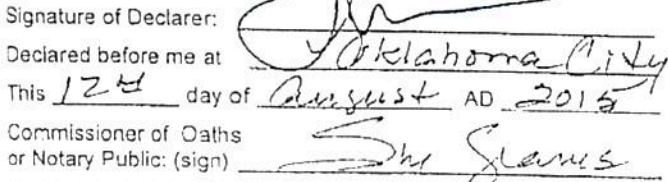 Signature of Declarer:
Declared before me at Oklahoma City
This 12th day of August AD 2015
Commissioner of Oaths
or Notary Public: (sign)